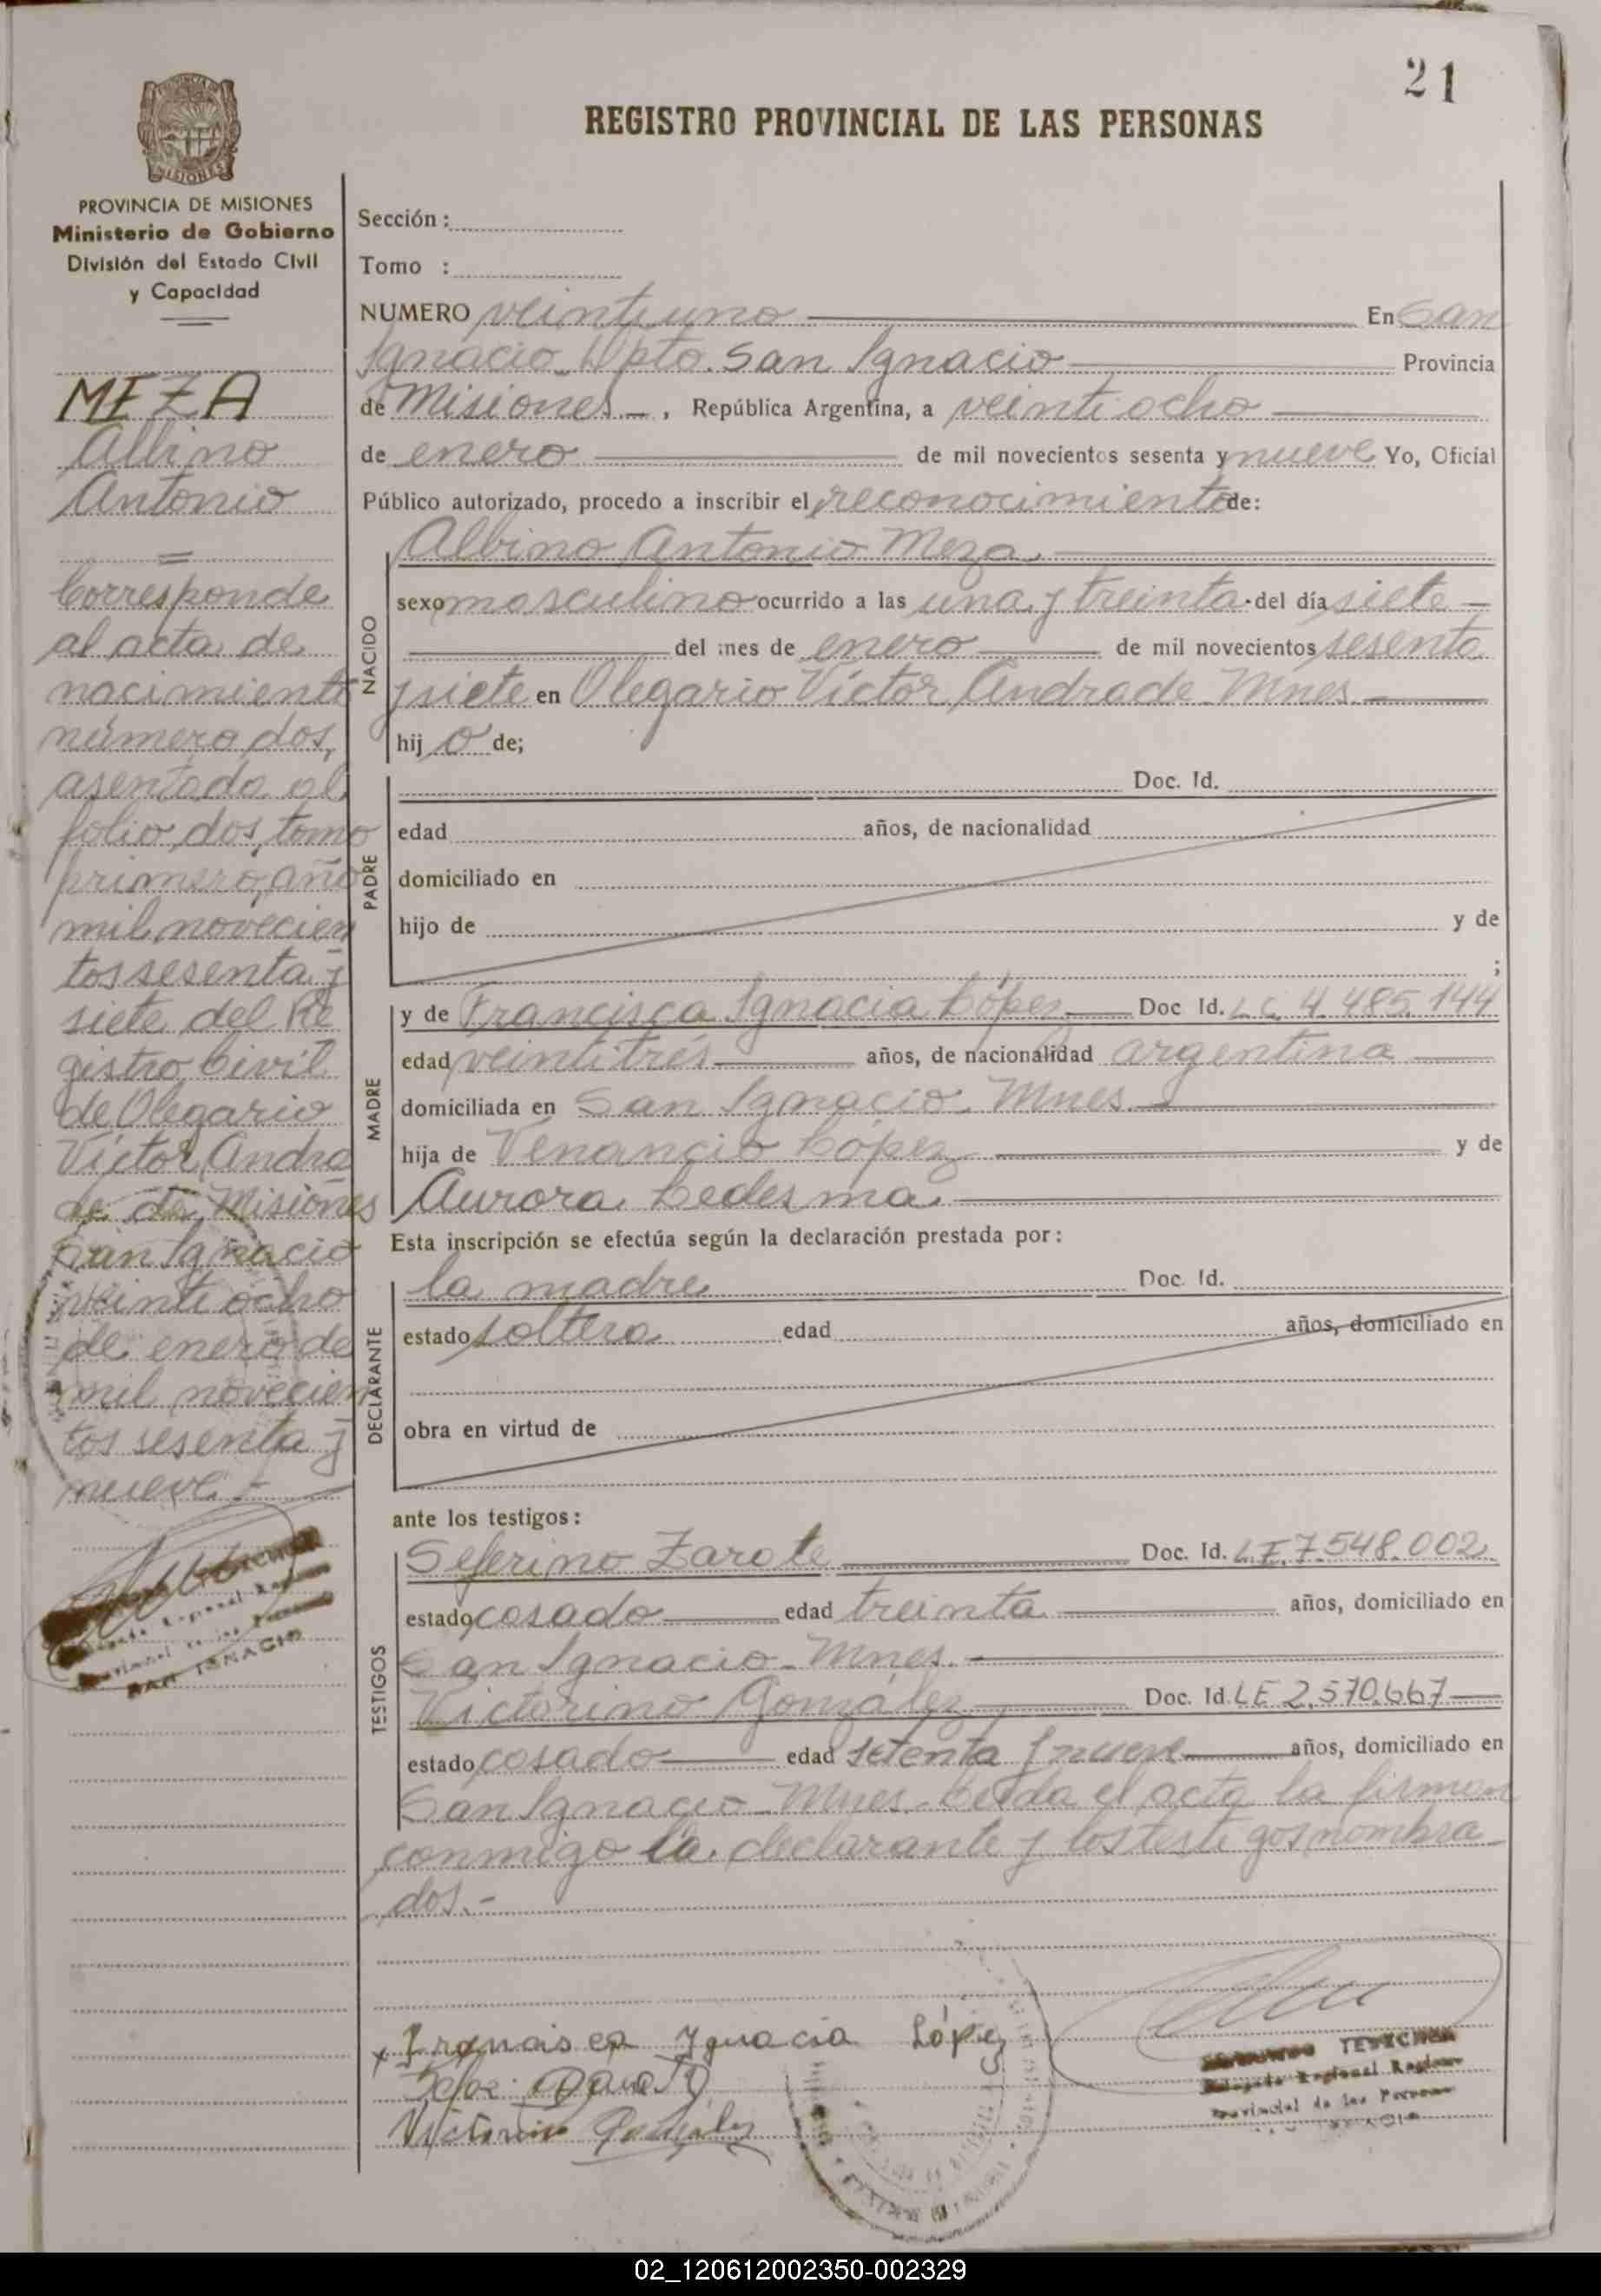 21
REGISTRO PROVINCIAL DE LAS PERSONAS
PROVINCIA DE MISIONES
Ministerio de Gobierno
División del Estado Civil
y Capacidad
MEZA
Albino
Antonio
=
Corresponde
al acta de
nacimiento
número dos,
asentada al
folio dos, tomo
primero, año
mil novecien
tos sesenta y
siete del Re
gistro Civil
de Olegario
Víctor Andra
de de Misiones
San Ignacio
veinti ocho
de enero de
mil novecien
tos sesenta y
nueve.-
SAN IGNACIO
Sección:
Tomo :
NUMERO veintiuno En San
Ignacio-Dpto. San Ignacio Provincia
de Misiones-, República Argentina, a veinti ocho
de enero de mil novecientos sesenta y nueve Yo, Oficial
Público autorizado, procedo a inscribir el reconocimiento de:
NACIDO
Albino Antonio Meza
sexo masculino ocurrido a las una y treinta del día siete
del mes de enero de mil novecientos sesenta
y siete en Olegario Víctor Andrade-Mnes.
hij o de;
PADRE
Doc. Id.
edad años, de nacionalidad
domiciliado en
hijo de y de
;
MADRE
y de Francisca Ignacia López Doc Id. LC. 4.485.144
edad veintitrés años, de nacionalidad argentina
domiciliada en San Ignacio. Mnes.
hija de Venancio López y de
Aurora Ledesma
Esta inscripción se efectúa según la declaración prestada por:
DECLARANTE
la madre Doc. Id.
estado soltera edad años, domiciliado en
obra en virtud de
ante los testigos:
TESTIGOS
Seferino Zarate Doc. Id. LE.7.548.002
estado casado edad treinta años, domiciliado en
San Ignacio-Mnes.
Victorino González Doc. Id. LE 2.570.667
estado casado edad setenta y nueve años, domiciliado en
San Ignacio-Mnes. Leída el acta la firman
conmigo la declarante y los testigos nombra
dos.-
x Francisca Ignacia López
Victorino González
TESZCHUK
Delegado Regional Registro
Provincial de las Personas
02_120612002350-002329